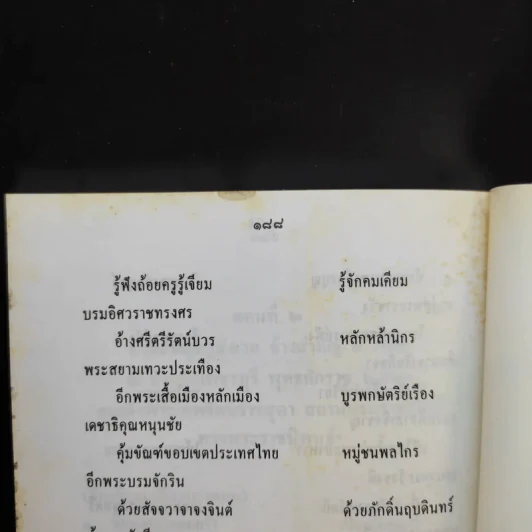 ๑๘๘
รู้ฟังถ้อยครูรู้เจียม รู้จักคมเคียม
บรมอิศวราชทรงศร
อ้างศรีตรีรัตน์บวร หลักหล้านิกร
พระสยามเทวะประเทือง
อีกพระเสื้อเมืองหลักเมือง บูรพกษัตริย์เรือง
เดชาธิคุณหนุนชัย
คุ้มขัณฑ์ขอบเขตประเทศไทย หมู่ชนพลไกร
อีกพระบรมจักริน
ด้วยสัจจวาจาจงจินต์ ด้วยภักดิ์นฤบดินทร์